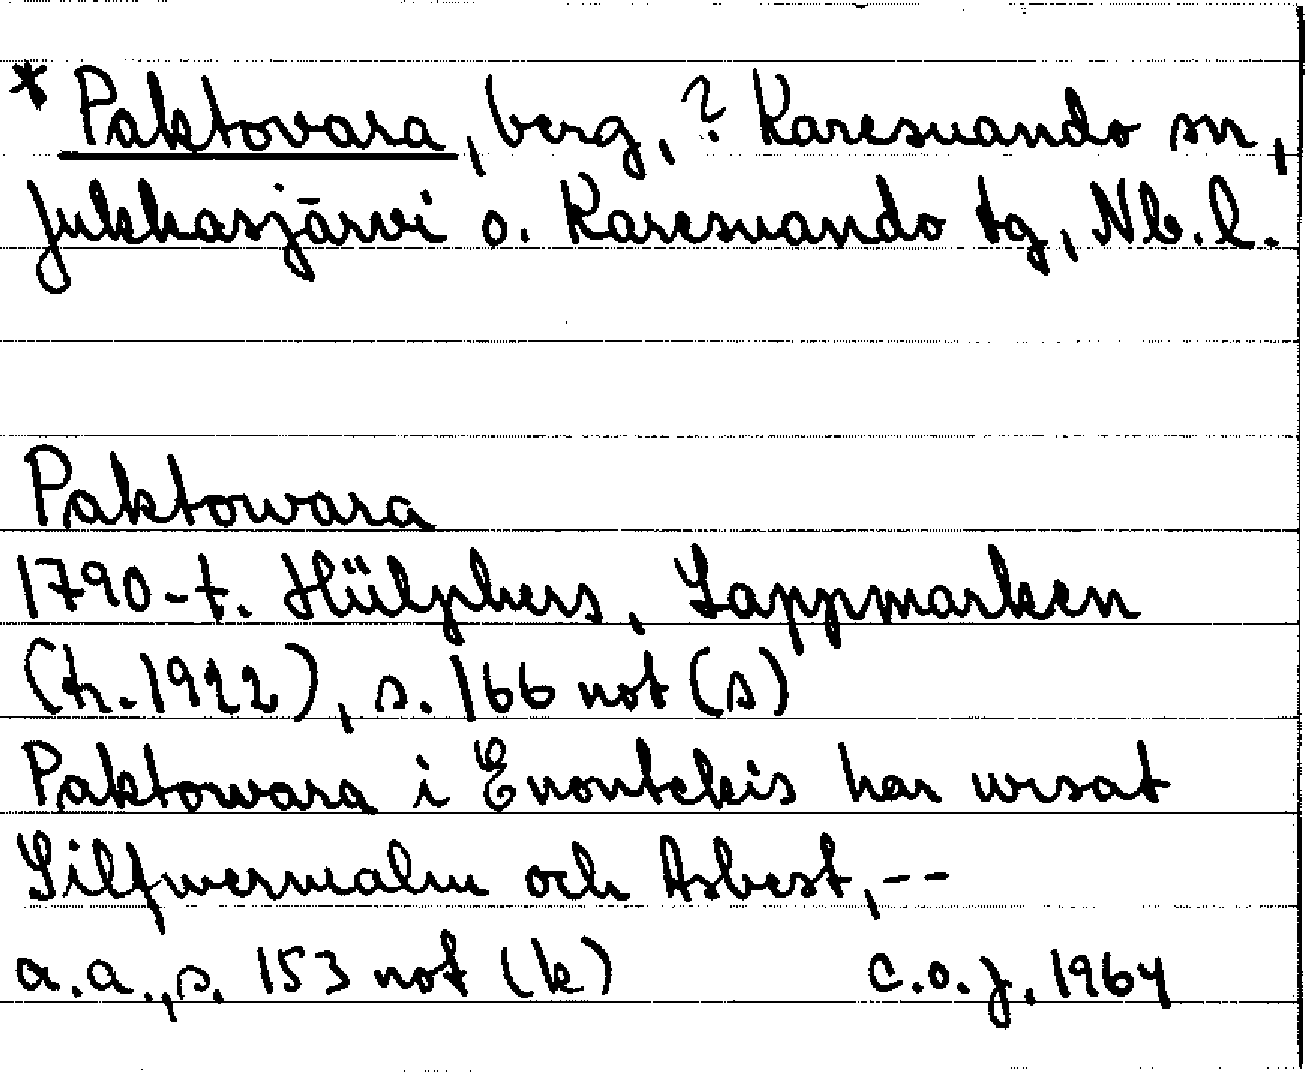 * Paktovara, berg, ? Karesuando sn,
Jukkasjärvi o. Karesuando tg, Nb. l.
Paktowara
1790-t. Hülphers, Lappmarken
(tr. 1922), s. 166 not (s)
Paktowara i Enontekis har wisat
Silfwermalm och Asbest, --
a.a., s. 153 not (k) C.O.J. 1964